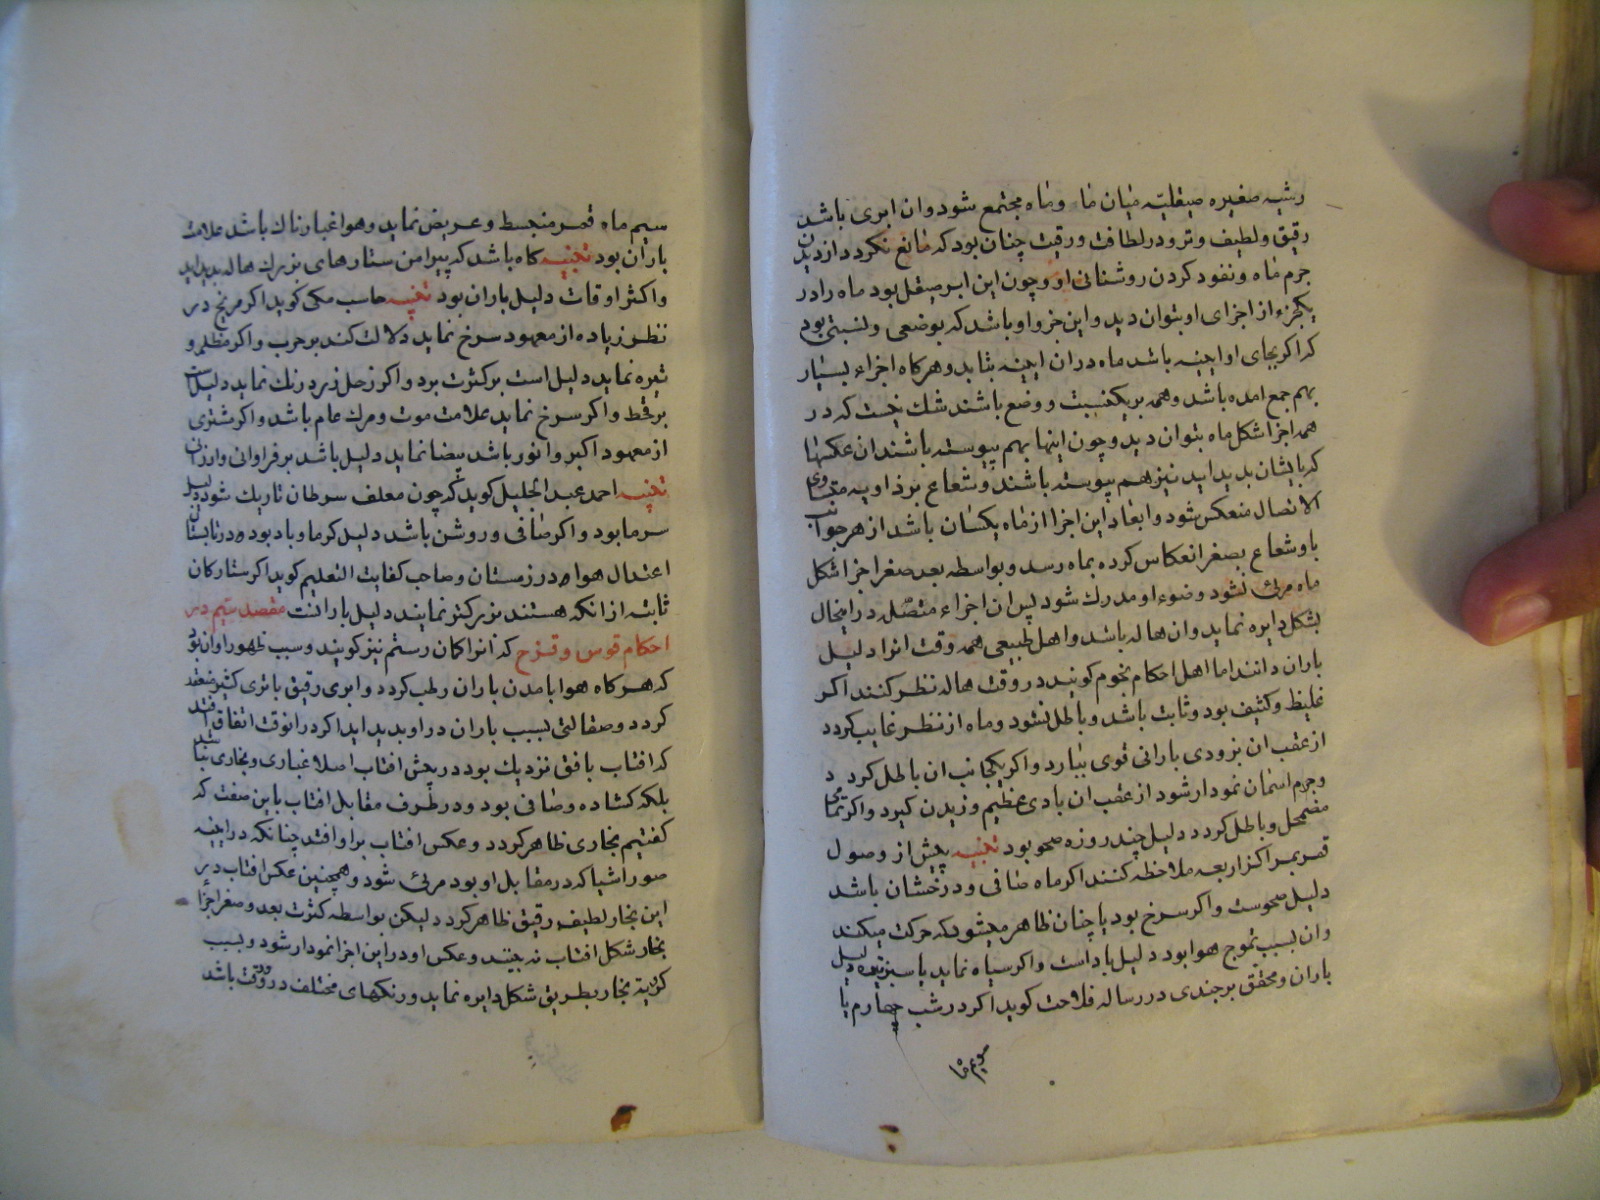 رشیه صغیره صیقلیه میان ما و ماه مجتمع شود وان ابری باشد
رقیق و لطیف و ترو در لطافت ورقت چنان بود که مانع نکردد از دیدن
جرم ماه و نفود کردن روشنائی او و چون این ابر صیقل بود ماه را در
یکجزء از اجزای او بتوان دید و این جزو او باشد که بوضعی و نسبتی بود
که اکر بجای او ایینه باشد ماه در ان ایینه بتابد و هر کاه اجزاء بسیار
بهم جمع امده باشد و همه بر یکنسبت و وضع باشند شک نیست که در
همه اجزا شکل ماه بتوان دید و چون اینها بهم پیوسته باشند ان عکسها
که بایشان بدید اید نیز هم پیوسته باشند و شعاع بر زاویه متساوی
الاتصال منعکس شود و ابعاد این اجزا از ماه یکسان باشد از هر جوانب
با و شعاع بصغر انعکاس کرده بماه رسد و بواسطه بعد صغر اجزا شکل
ماه مرئی نشود و ضوء او مدرک شود پس ان اجزاء متصل در انحال
بشکل دایره نماید و ان هاله باشد و اهل طبیعی همه وقت انرا دلیل
باران دانند اما اهل احکام نجوم کویند در وقت هاله نظر کنند اکر
غلیظ و کثیف بود و ثابت باشد و باطل نشود و ماه از نظر غایب کردد
از عقب ان بزودی بارانی قوی ببارد و اکر یکجانب ان باطل کردد
و جرم اسمان نمودار شود از عقب ان بادی عظیم وزیدن کیرد و اکر تمامی
مضمحل و باطل کردد دلیل چند روزه صحو بود تنبیه پیش از وصول
قمر بمراکز اربعه ملاحظه کنند اکر ماه صافی و درخشان باشد
دلیل صحوست و اکر سرخ بود یا چنان ظاهر میشود که حرکت میکند
و ان بسبب تموج هوا بود دلیل باد است و اکر سیاه نماید یا سبز تیره دلیل
باران و محقق برجندی در رساله فلاحت کوید اکر در شب چهارم یا
سیم ماه قمر منبسط و عریض نماید و هوا غبارناک باشد علامت
باران بود تنبیه کاه باشد که پیرامن ستارهای بزرک هاله بدید اید
و اکثر اوقات دلیل باران بود تنبیه حاسب مکی کوید اکر مریخ در
نظر زیاده از معهود سرخ نماید دلالت کند بر حرب و اکر مظلم و
تیره نماید دلیل است بر کثرت برد و اکر زحل زرد رنک نماید دلیل است
بر قحط و اکر سرخ نماید علامت موت و مرک عام باشد و اکر مشتری
از معهود اکبر و انور باشد بیضا نماید دلیل باشد بر فراوانی و ارزانی
تنبیه احمد عبد الجلیل کوید که چون معلف سرطان تاریک شود دلیل
سرما بود و اکر صافی و روشن باشد دلیل کرما و باد بود در تابستان
اعتدال هوا در زمستان و صاحب کفایت التعلیم کوید اکر ستارکان
ثابته از انکه هستند بزرکتر نمایند دلیل بارانت مقصد سیم در
احکام قوس و قزح که انرا کمان رستم نیز کویند و سبب ظهور او ان بود
که هر کاه هوا بامدن باران رطب کردد و ابری رقیق یا تری کثیر منعقد
کردد و صقالتی بسبب باران در او بدید اید اکر در انوقت اتفاق افتد
که افتاب بافق نزدیک بود در پیش افتاب اصلا غباری و بخاری نباشد
بلکه کشاده و صافی بود و در طرف مقابل افتاب باین صفت که
کفتیم بخاری ظاهر کردد و عکس افتاب بر او افتد چنانکه در ایینه
صور اشیا که در مقابل او بود مرئی شود و همچنین عکس افتاب در
این بخار لطیف رقیق ظاهر کردد لیکن بواسطه کثرت بعد و صغر اجزا
بخار شکل افتاب نه بینند و عکس او در این اجزا نمودار شود و بسبب
کرویة بخار بطریق شکل دایره نماید و رنکهای مختلف در وقت باشد